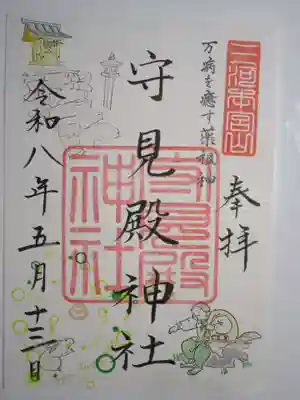 三河本宮山
万病を癒す薬祖神
奉拝
守見殿神社
守見殿神社
令和八年五月十三日